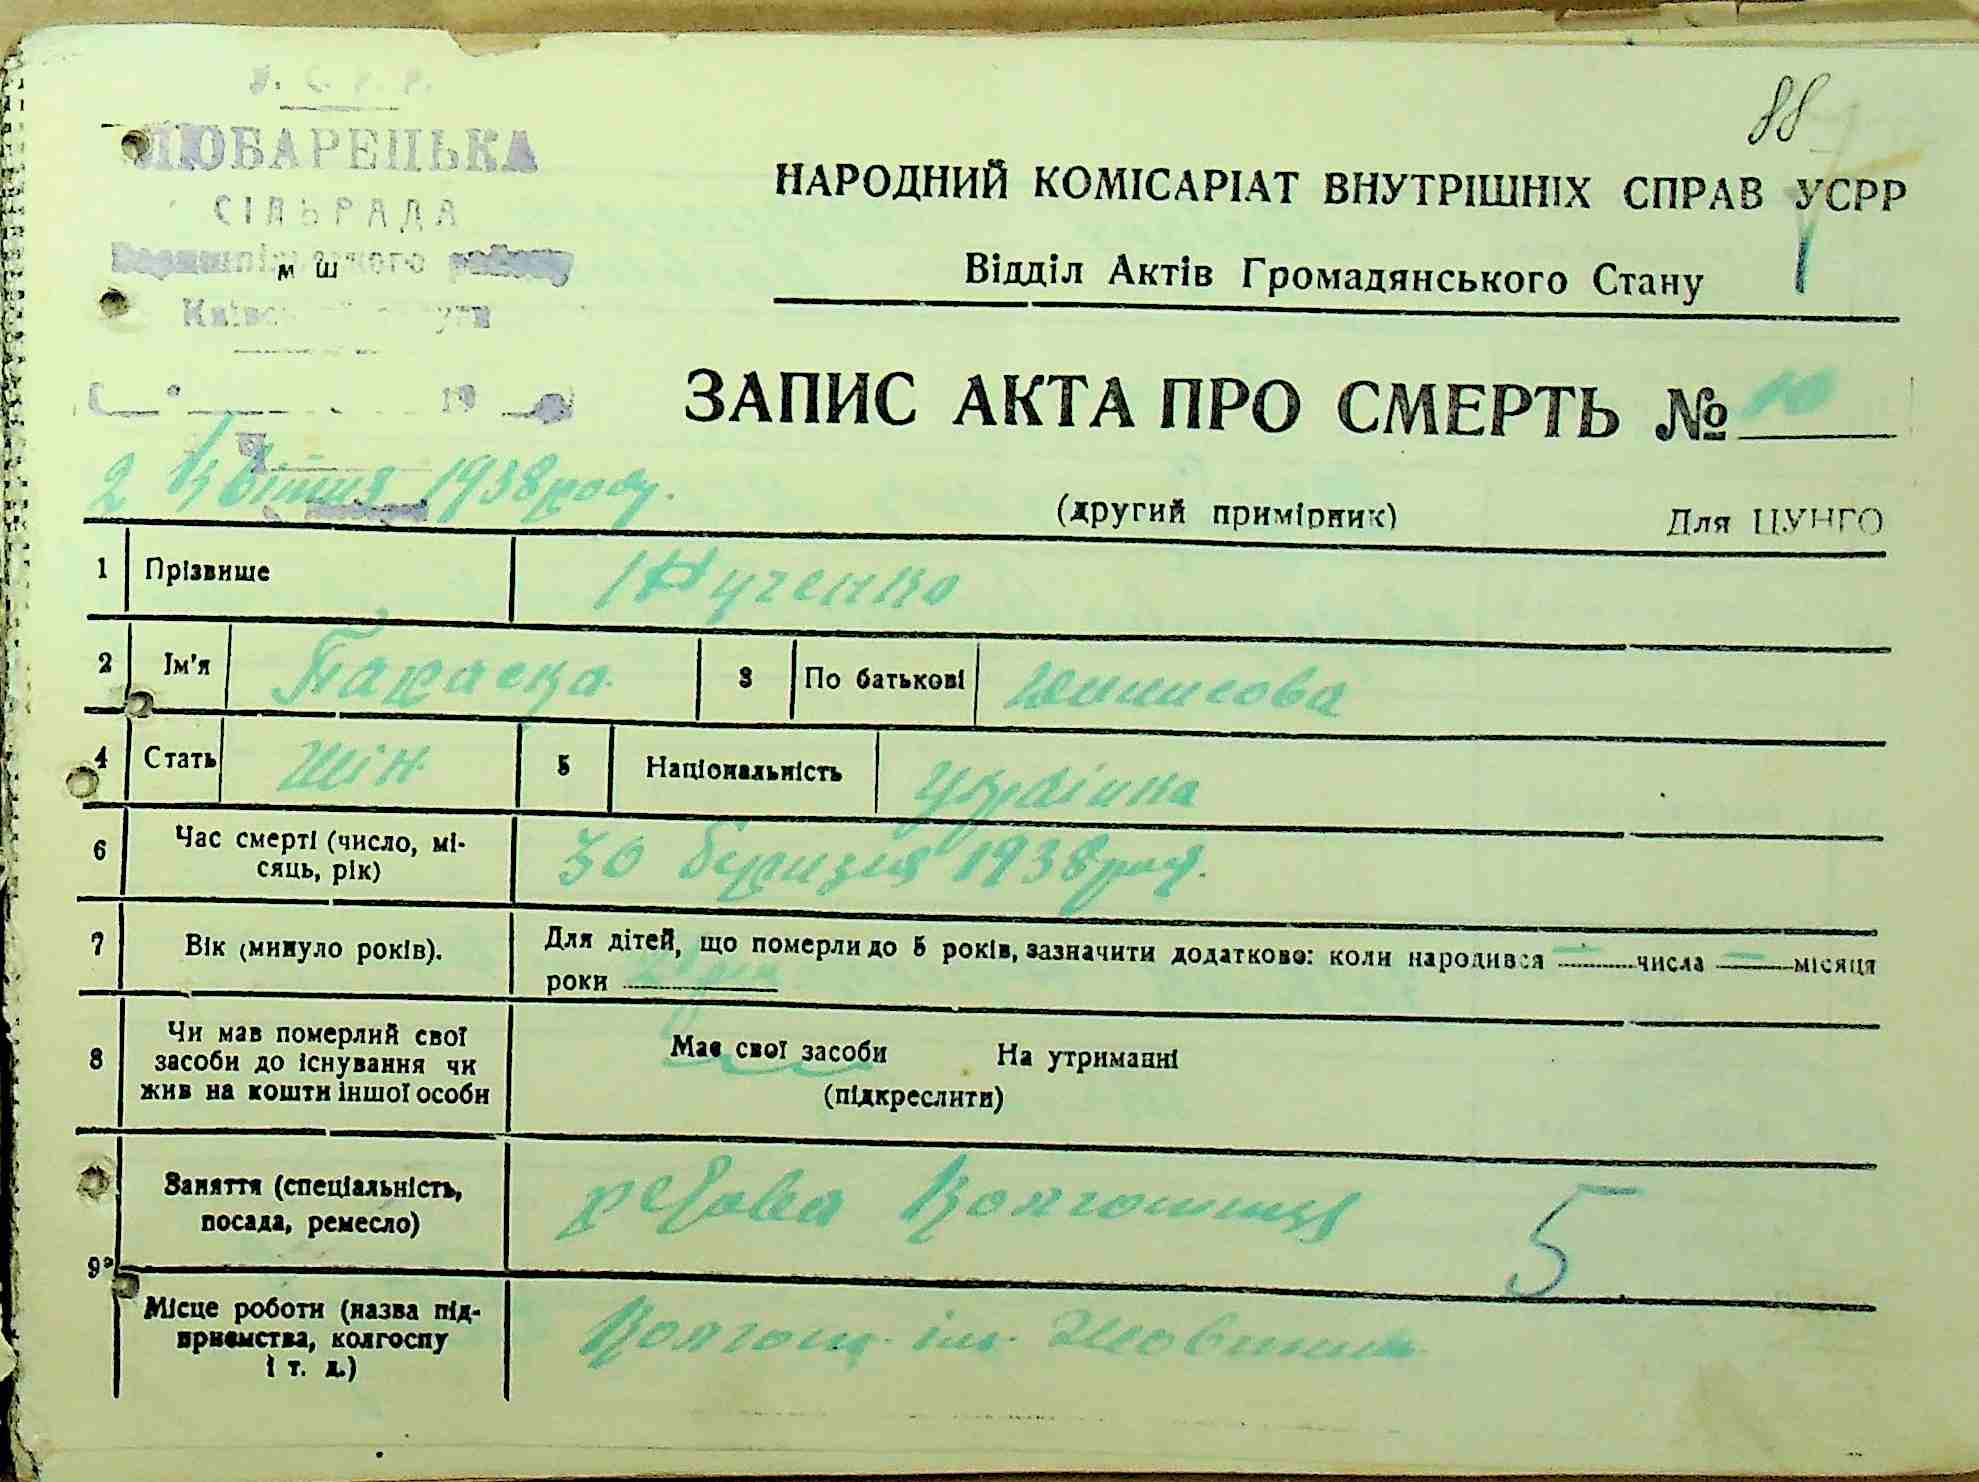 У. С. Р. Р.
ЛЮБАРЕЦЬКА
СІЛЬРАДА
району
88
НАРОДНИЙ КОМІСАРІАТ ВНУТРІШНІХ СПРАВ УСРР
Відділ Актів Громадянського Стану
19
ЗАПИС АКТА ПРО СМЕРТЬ № 10
2 Квітня 1938 року.
(другий примірник) Для ЦУНГО
1 Прізвище
2 Ім'я Параска 3 По батькові
4 Стать жін. 5 Національність Українка
6 Час смерті (число, мі-
сяць, рік) 30 березня 1938 року.
7 Вік (минуло років). Для дітей, що померли до 5 років, зазначити додатково: коли народився — числа — місяця
роки
8 Чи мав померлий свої
засоби до існування чи
жив на кошти іншої особи
Має свої засоби На утриманні
(підкреслити)
Заняття (спеціальність,
посада, ремесло) рядова Колгоспниця 5
9
Місце роботи (назва під-
приємства, колгоспу
і т. д.) Колгосп ім.